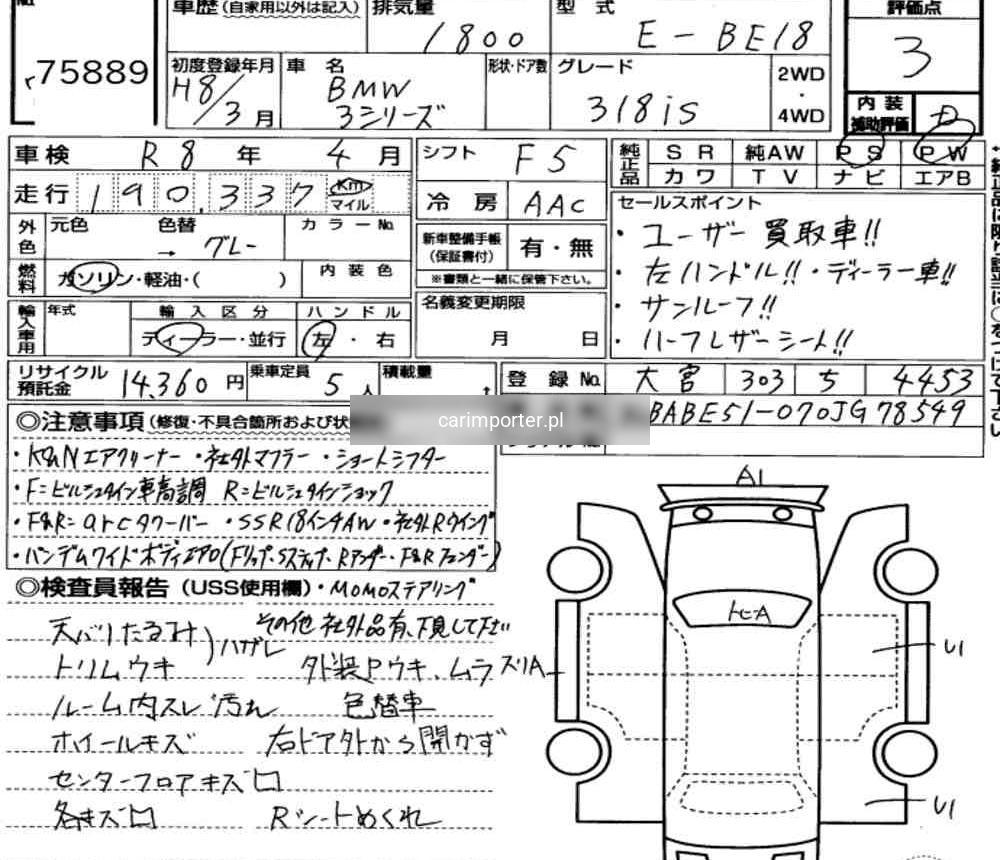 車歴 (自家用以外は記入) 排気量 1800 型式 E-BE18 評価点 3
75889
初度登録年月 H8/3月 車名 BMW 3シリーズ 形状・ドア数 グレード 318is 2WD・4WD
内装補助評価 D
車検 R8年4月 シフト F5 純正品 SR 純AW PS PW
カワ TV ナビ エアB
走行 190,337 Km マイル 冷房 AAC
外色 元色 色替 → グレー カラーNo.
新車整備手帳 (保証書付) 有・無
※書類と一緒に保管下さい。
燃料 ガソリン・軽油・( ) 内装色
セールスポイント
・ユーザー買取車!!
・左ハンドル!!・ディーラー車!!
・サンルーフ!!
・ハーフレザーシート!!
輸入車用 年式 輸入区分 ディーラー・並行 ハンドル 左・右
名義変更期限 月 日
リサイクル預託金 14,360円 乗車定員 5人 積載量
登録No. 大宮 303 ち 4453
BABE51-070JG78549
carimporter.pl
◎注意事項 (修復・不具合箇所および状
・K&Nエアクリーナー ・社外マフラー ・ショートシフター
・F=ビルシュタイン車高調 R=ビルシュタインショック
・F&R=arcタワーバー ・SSR18インチAW・社外Rウイング
・バンデムワイドボディエアロ(Fリップ・Sステップ・Rアンダー・F&Rフェンダー)
◎検査員報告 (USS使用欄)・MOMOステアリング
天バリたるみ)ハガレ その他社外品有、下見して下さい
トリムウキ 外装Pウキ、ムラ ズリA
ルーム内スレ汚れ 色替車
ホイールキズ 右ドア外から開かず
センターフロアキズ
各キズ Rシートめくれ
A1
トビA
U1
U1